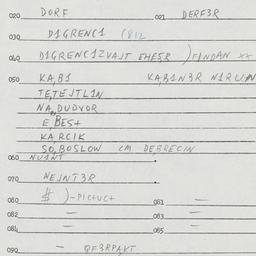 020 DORF 021 DERF3R
030 D1GRENC1 (812
040 D1GRENC1ZVAJT EHE5R )F1NDAN XX
050 KA,B1 KA,B1N3R N1RUN
TE,TEJTL1N
NA,DUDVOR
E,BES+
KA,RCIK
SO,BOSLOW CM DEBRECIN
060 NU1NT .
070 NEJNT3R .
080 $ )-PICTUCT 081 —
082 — 083 —
084 — 085 —
090 — QF3RPAKT